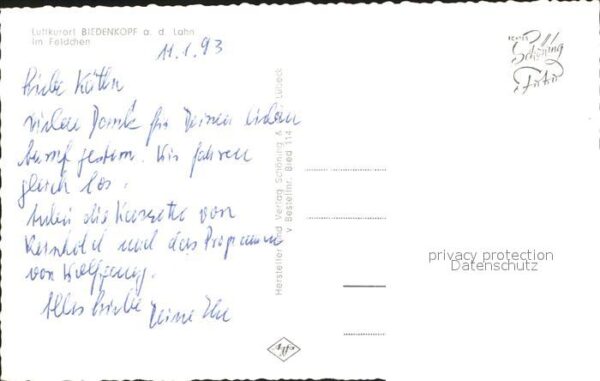 Luftkurort BIEDENKOPF a. d. Lahn
Im Feldchen
11.1.93
Liebe Käthe
vielen Dank für Deinen lieben
Anruf gestern. Wir fahren
gleich los.
Anbei die Kassette von
Reinhold und das Programm
von Wolfgang.
Alles Liebe Deine
Hersteller und Verlag Schöning & Lübeck
Bestellnr. Bied 114
Schöning
Foto
Agfa
privacy protection
Datenschutz